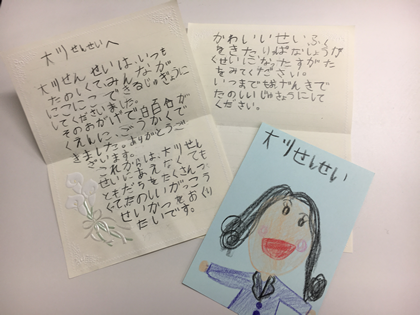 大川せんせいへ
大川せんせいは、いつも
たのしくてみんなが
にこにこできるじゅぎょうに
してくださいました。
そのおかげで白百合が
くえんに、ごうかくで
きました。ありがとうご
ざいます。
これからは、大川せんても
せいにあえなくても
ともだちをたくさんつ
くてたのしいがっこう
せいかつをおくり
たいです。
かわいいせいふく
をきたりっぱなしょうが
くせいになったすがた
をみてください。
いつまでもおげんきで
たのしいじゅぎょうにして
ください。
大川せんせい